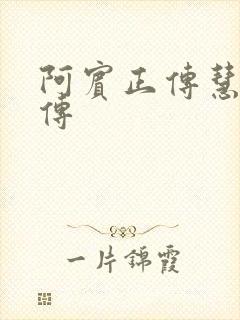 阿賓正傳慧
傳
一片錦霞